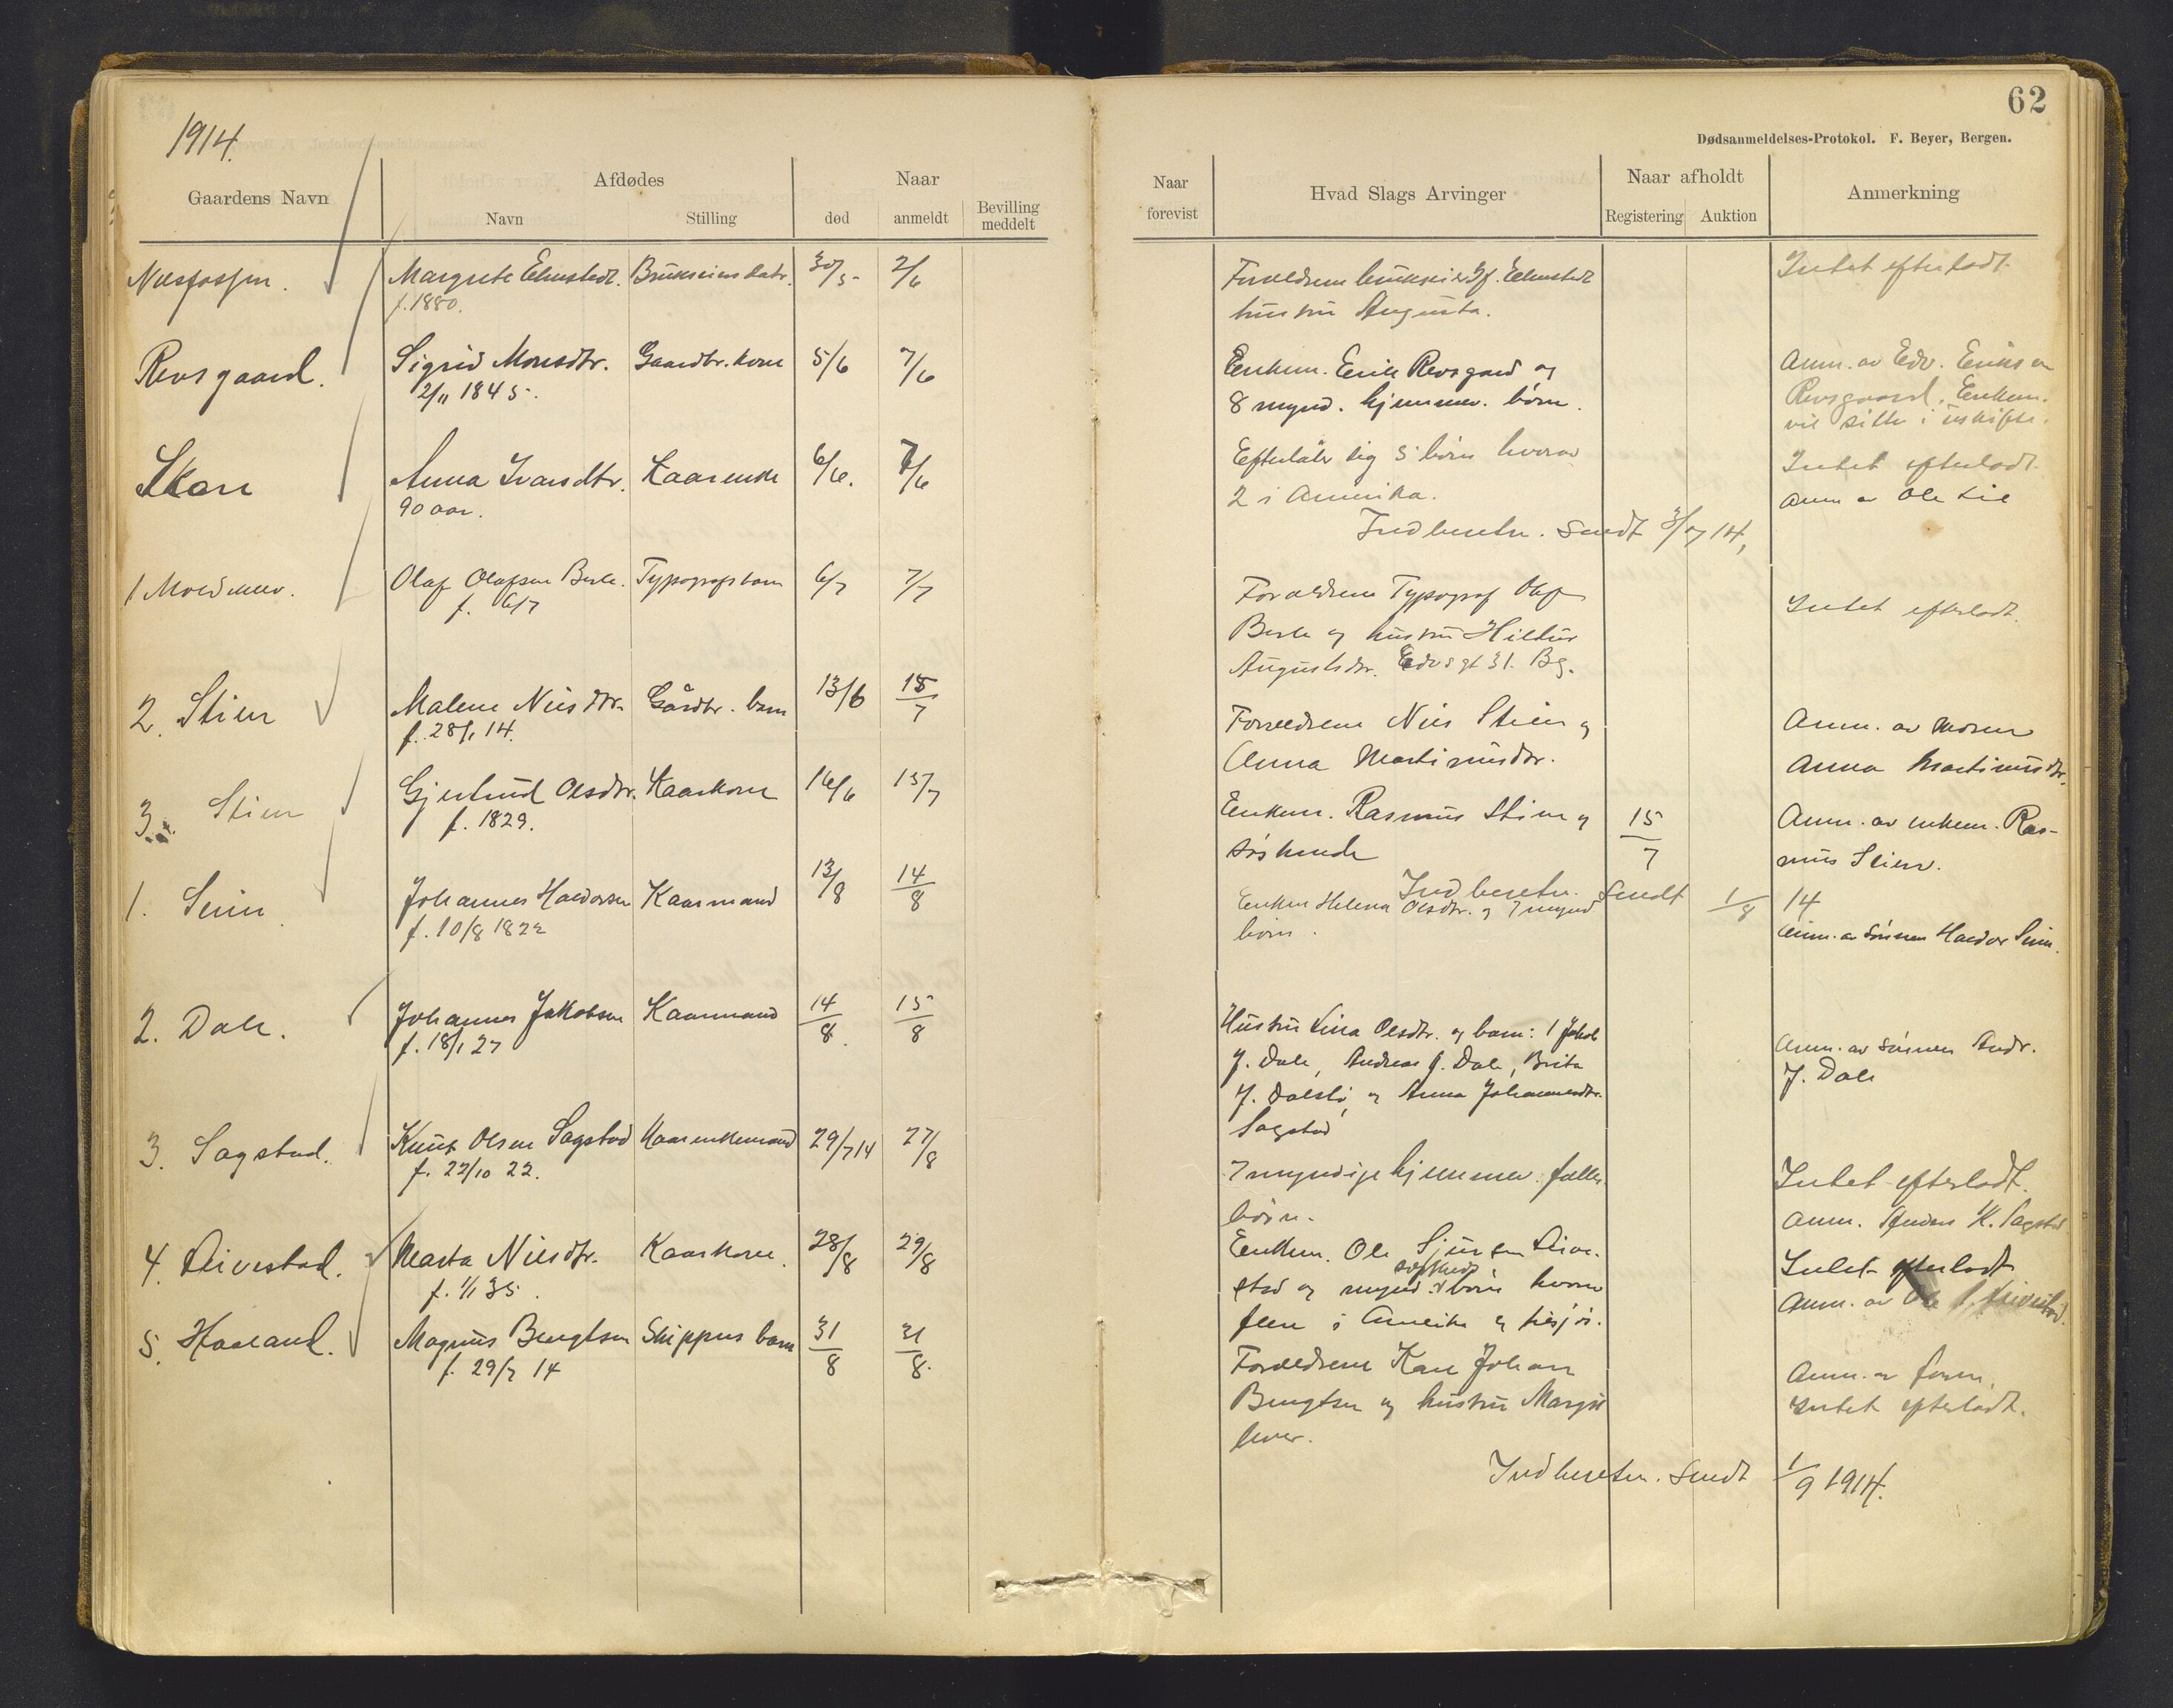 62
1914.
Dødsanmeldelses-Protokol. F. Beyer, Bergen.
Gaardens Navn
Afdødes
Navn
Stilling
Naar
død
anmeldt
Bevilling
meddelt
Naar
forevist
Hvad Slags Arvinger
Naar afholdt
Registering
Auktion
Anmerkning
Margrete
30/5
2/6
f. 1880.
hustru Augusta.
Intet efterladt.
Revsgaard.
Sigrid Monsdtr.
Gaardbr. kone
5/6
7/6
2/11 1845.
Enkem. Erik Revsgard og
8 mynd. hjemmev. børn.
Anm. av Edv. Eriksen
Revsgaard. Enkem.
vil sitte i uskifte.
Anna Ivarsdtr.
Kaarenke
6/6.
7/6
90 aar.
Efterlater sig 5 børn hvorav
2 i Amerika.
Intet efterladt.
Anm av Ole Lie
Indberetn. sendt 3/7 14,
1
Olaf Olafsen
Typografs barn
6/7
7/7
f. 6/7
Forældrene Typograf Olaf
og hustru
31. Bg.
Intet efterladt.
2. Stien
Malene Nilsdtr.
Gårdbr. barn
13/6
15/7
f. 28/1 14.
Forældrene Nils Stien og
Anna Martinusdtr.
Anm. av Moren
Anna Martinusdtr.
3. Stien
Gjertrud Olsdtr.
Kaarkone
16/6
15/7
f. 1829.
Enkem. Rasmus Stien og
søskende
15/7
Anm. av enkem. Ras-
mus Stien.
Indberetn. sendt 1/8 14
1.
Johannes Haldorsen
Kaarmand
13/8
14/8
f. 10/8 1822
Enken Helena Olsdtr. og 7 mynd
børn.
Anm. av sønnen Haldor
2. Dale.
Johannes Jakobsen
Kaarmand
14/8
15/8
f. 18/1 27
Hustru Lina Olsdtr. og barn: 1 Jakob
J. Dale, Andreas J. Dale, Brita
J. og Anna Johannesdtr.
Sagstad
Anm. av sønnen Andr.
J. Dale
3. Sagstad.
Knut Olsen Sagstad
Kaarenkemand
29/7 14
27/8
f. 22/10 22.
7 myndige hjemmev. fælles
børn.
Intet efterladt.
Anm. Anders K. Sagstad
4.
Marta Nilsdtr.
Kaarkone.
28/8
29/8
f. 1/1 35.
Enkem. Ole Sjursen
stad og mynd. børn hvorav
flere i Amerika
Intet efterladt
Anm. av Ole
5.
Magnus Bengtsen
Skippers barn
31/8
31/8.
f. 29/7 14
Forældrene Karl Johan
Bengtsen og hustru
lever.
Anm. av faren.
Intet efterladt.
Indberetn. sendt 1/9 1914.